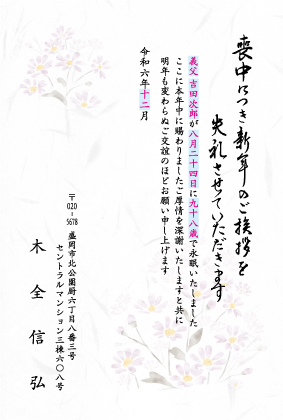 喪中につき新年のご挨拶を
失礼させていただきます
義父 吉田次郎が八月二十四日に九十八歳で永眠いたしました
ここに本年中に賜わりましたご厚情を深謝いたしますと共に
明年も変わらぬご交誼のほどお願い申し上げます
令和六年十二月
〒020-5678
盛岡市北公園厨六丁目八番三号
セントラルマンション三棟六〇八号
木全信弘